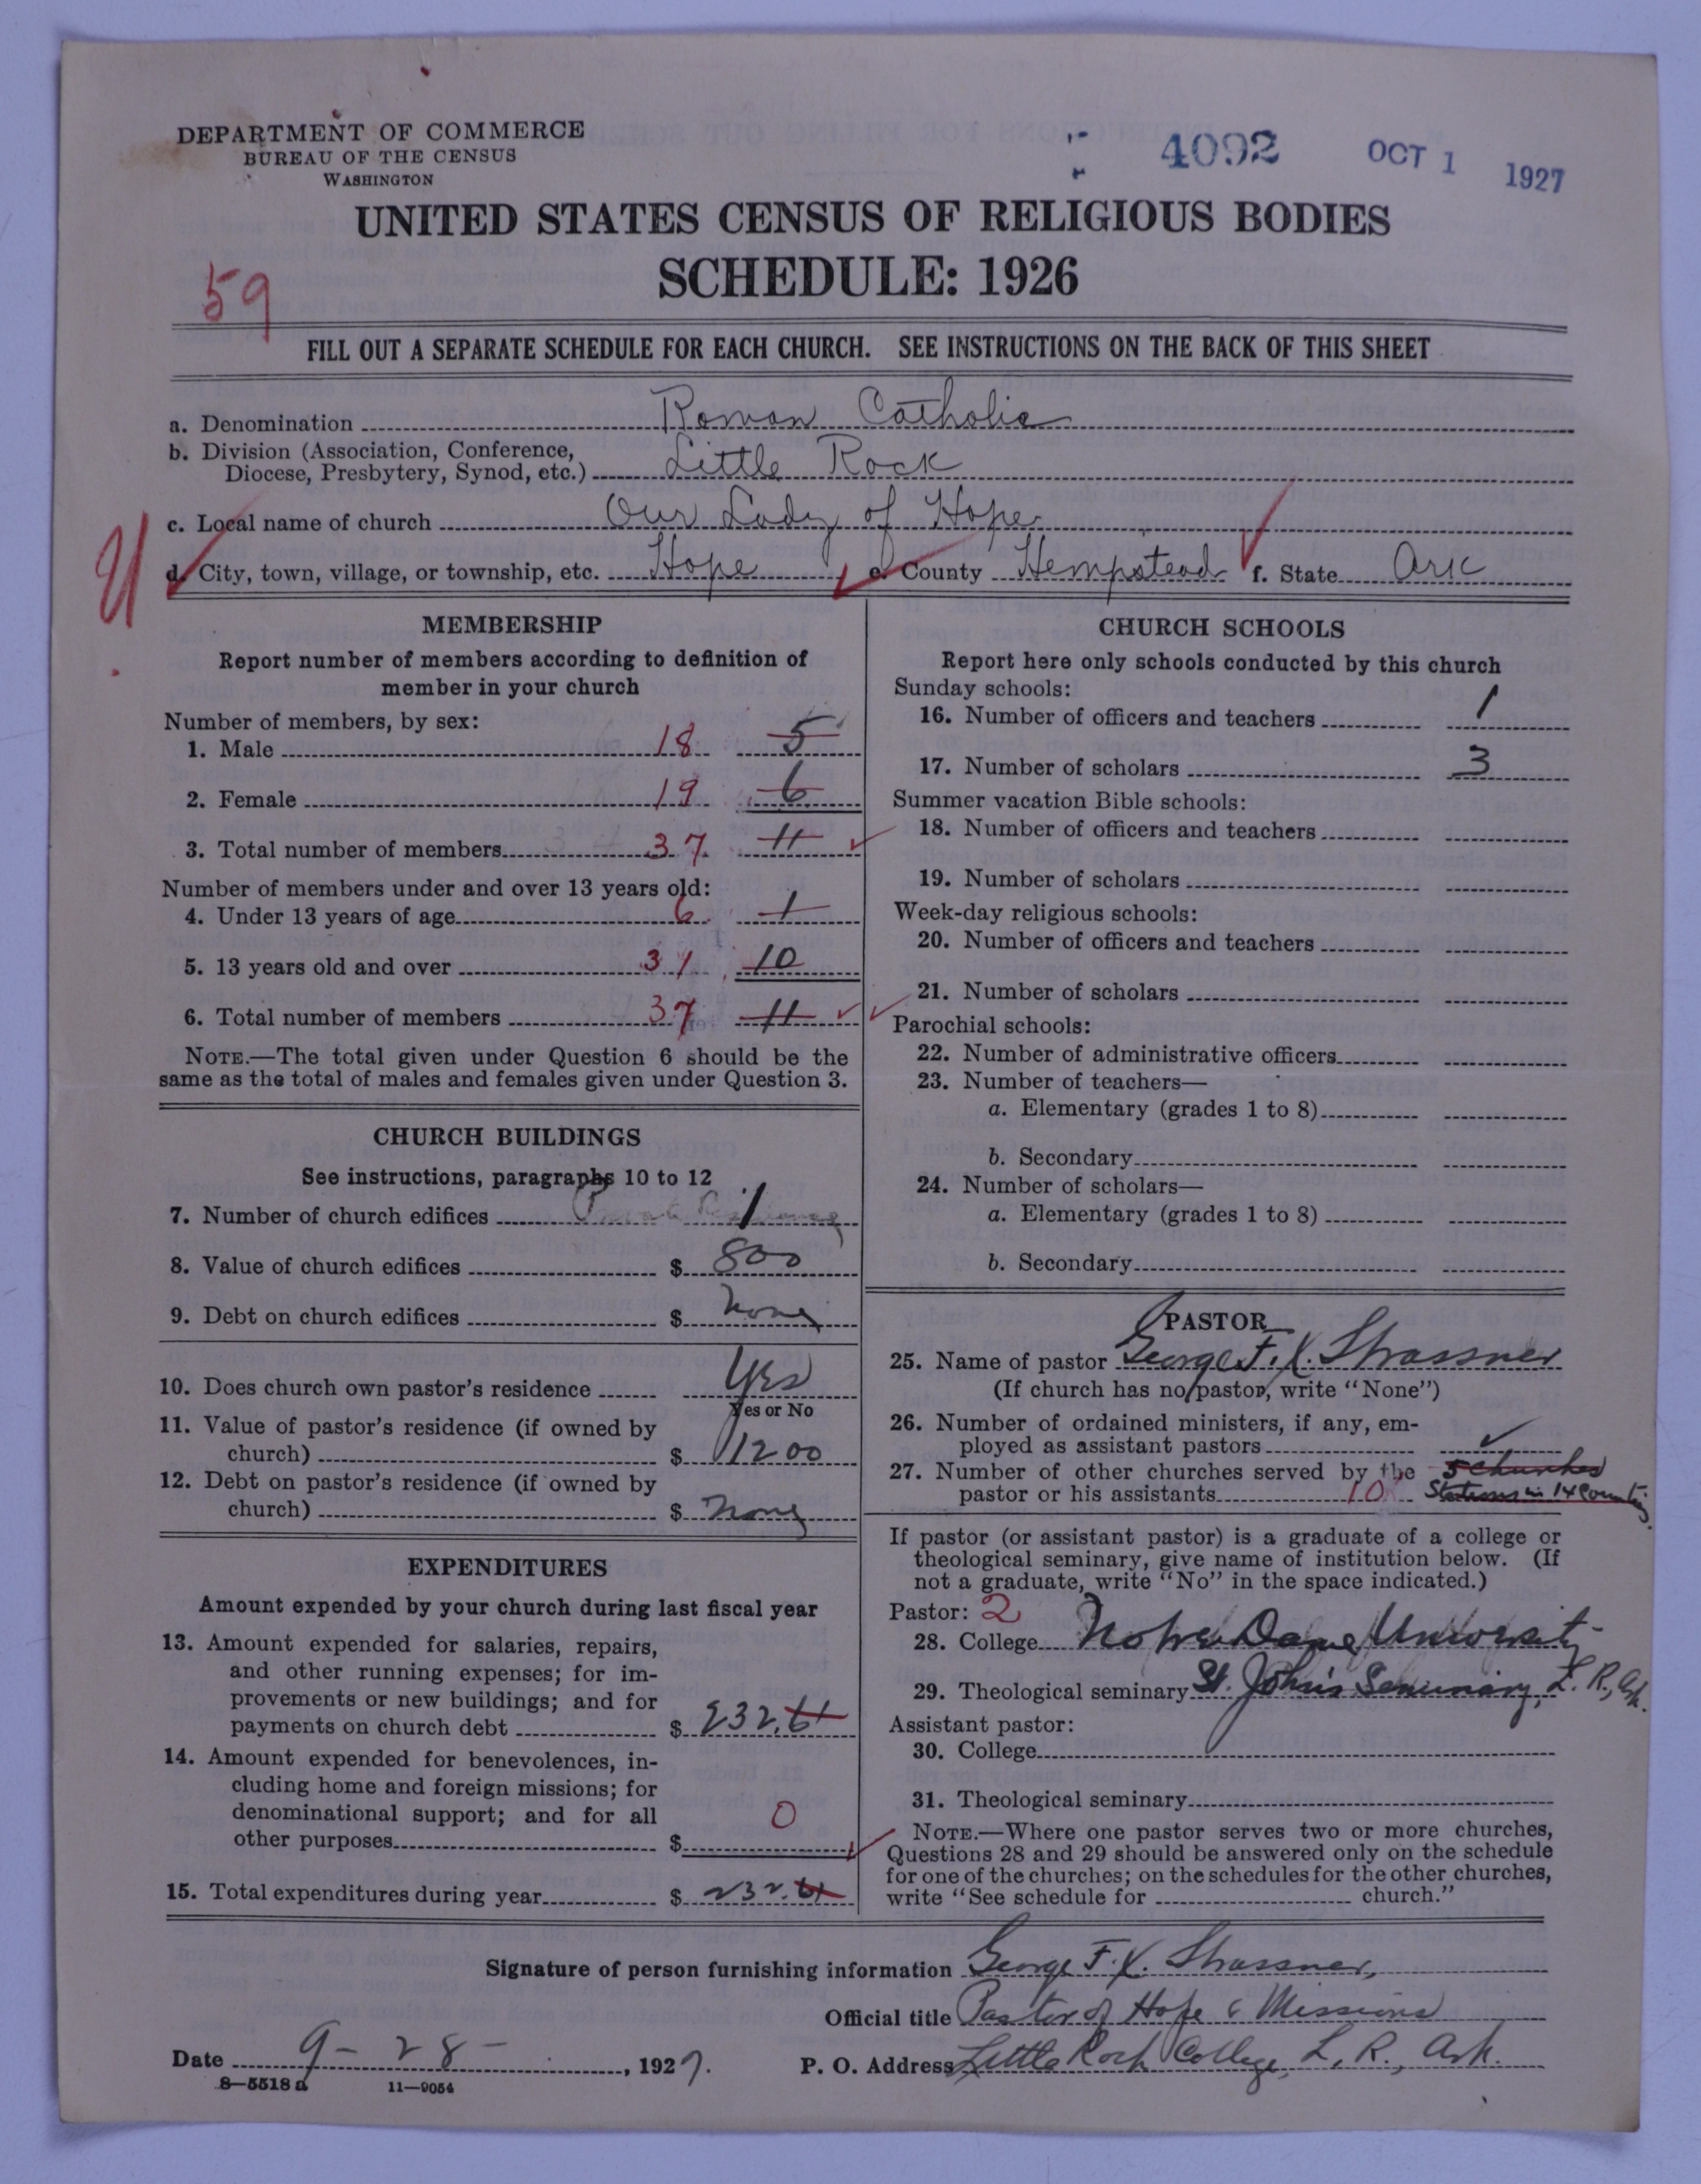 DEPARTMENT OF COMMERCE
BUREAU OF THE CENSUS
WASHINGTON
4092 OCT 1 1927
UNITED STATES CENSUS OF RELIGIOUS BODIES
SCHEDULE: 1926
59
FILL OUT A SEPARATE SCHEDULE FOR EACH CHURCH. SEE INSTRUCTIONS ON THE BACK OF THIS SHEET
a. Denomination Roman Catholic
b. Division (Association, Conference,
Diocese, Presbytery, Synod, etc.) Little Rock
c. Local name of church Our Lady of Hope
U
d. City, town, village, or township, etc. Hope e. County Hempstead f. State Ark
MEMBERSHIP
Report number of members according to definition of
member in your church
Number of members, by sex:
1. Male 18 5
2. Female 19 6
3. Total number of members 37 11
Number of members under and over 13 years old:
4. Under 13 years of age 6 1
5. 13 years old and over 31 10
6. Total number of members 37 11
NOTE.—The total given under Question 6 should be the
same as the total of males and females given under Question 3.
CHURCH BUILDINGS
See instructions, paragraphs 10 to 12
7. Number of church edifices Private Residence 1
8. Value of church edifices $ 800
9. Debt on church edifices $ None
10. Does church own pastor's residence Yes
Yes or No
11. Value of pastor's residence (if owned by
church) $ 1200
12. Debt on pastor's residence (if owned by
church) $ None
EXPENDITURES
Amount expended by your church during last fiscal year
13. Amount expended for salaries, repairs,
and other running expenses; for im-
provements or new buildings; and for
payments on church debt $ 232.61
14. Amount expended for benevolences, in-
cluding home and foreign missions; for
denominational support; and for all
other purposes $ 0
15. Total expenditures during year $ 232.61
CHURCH SCHOOLS
Report here only schools conducted by this church
Sunday schools:
16. Number of officers and teachers 1
17. Number of scholars 3
Summer vacation Bible schools:
18. Number of officers and teachers
19. Number of scholars
Week-day religious schools:
20. Number of officers and teachers
21. Number of scholars
Parochial schools:
22. Number of administrative officers
23. Number of teachers—
a. Elementary (grades 1 to 8)
b. Secondary
24. Number of scholars—
a. Elementary (grades 1 to 8)
b. Secondary
PASTOR
25. Name of pastor George F. X. Strassner
(If church has no pastor, write "None")
26. Number of ordained ministers, if any, em-
ployed as assistant pastors
27. Number of other churches served by the 5 churches
pastor or his assistants 10 Stations in 14 Counties.
If pastor (or assistant pastor) is a graduate of a college or
theological seminary, give name of institution below. (If
not a graduate, write "No" in the space indicated.)
Pastor: 2
28. College Notre Dame University
29. Theological seminary St. John's Seminary, L. R., Ark.
Assistant pastor:
30. College
31. Theological seminary
NOTE.—Where one pastor serves two or more churches,
Questions 28 and 29 should be answered only on the schedule
for one of the churches; on the schedules for the other churches,
write "See schedule for church."
Signature of person furnishing information George F. X. Strassner,
Official title Pastor of Hope & Missions
Date 9-28-, 1927. P. O. Address Little Rock College, L. R., Ark.
8—5518 a 11—9054